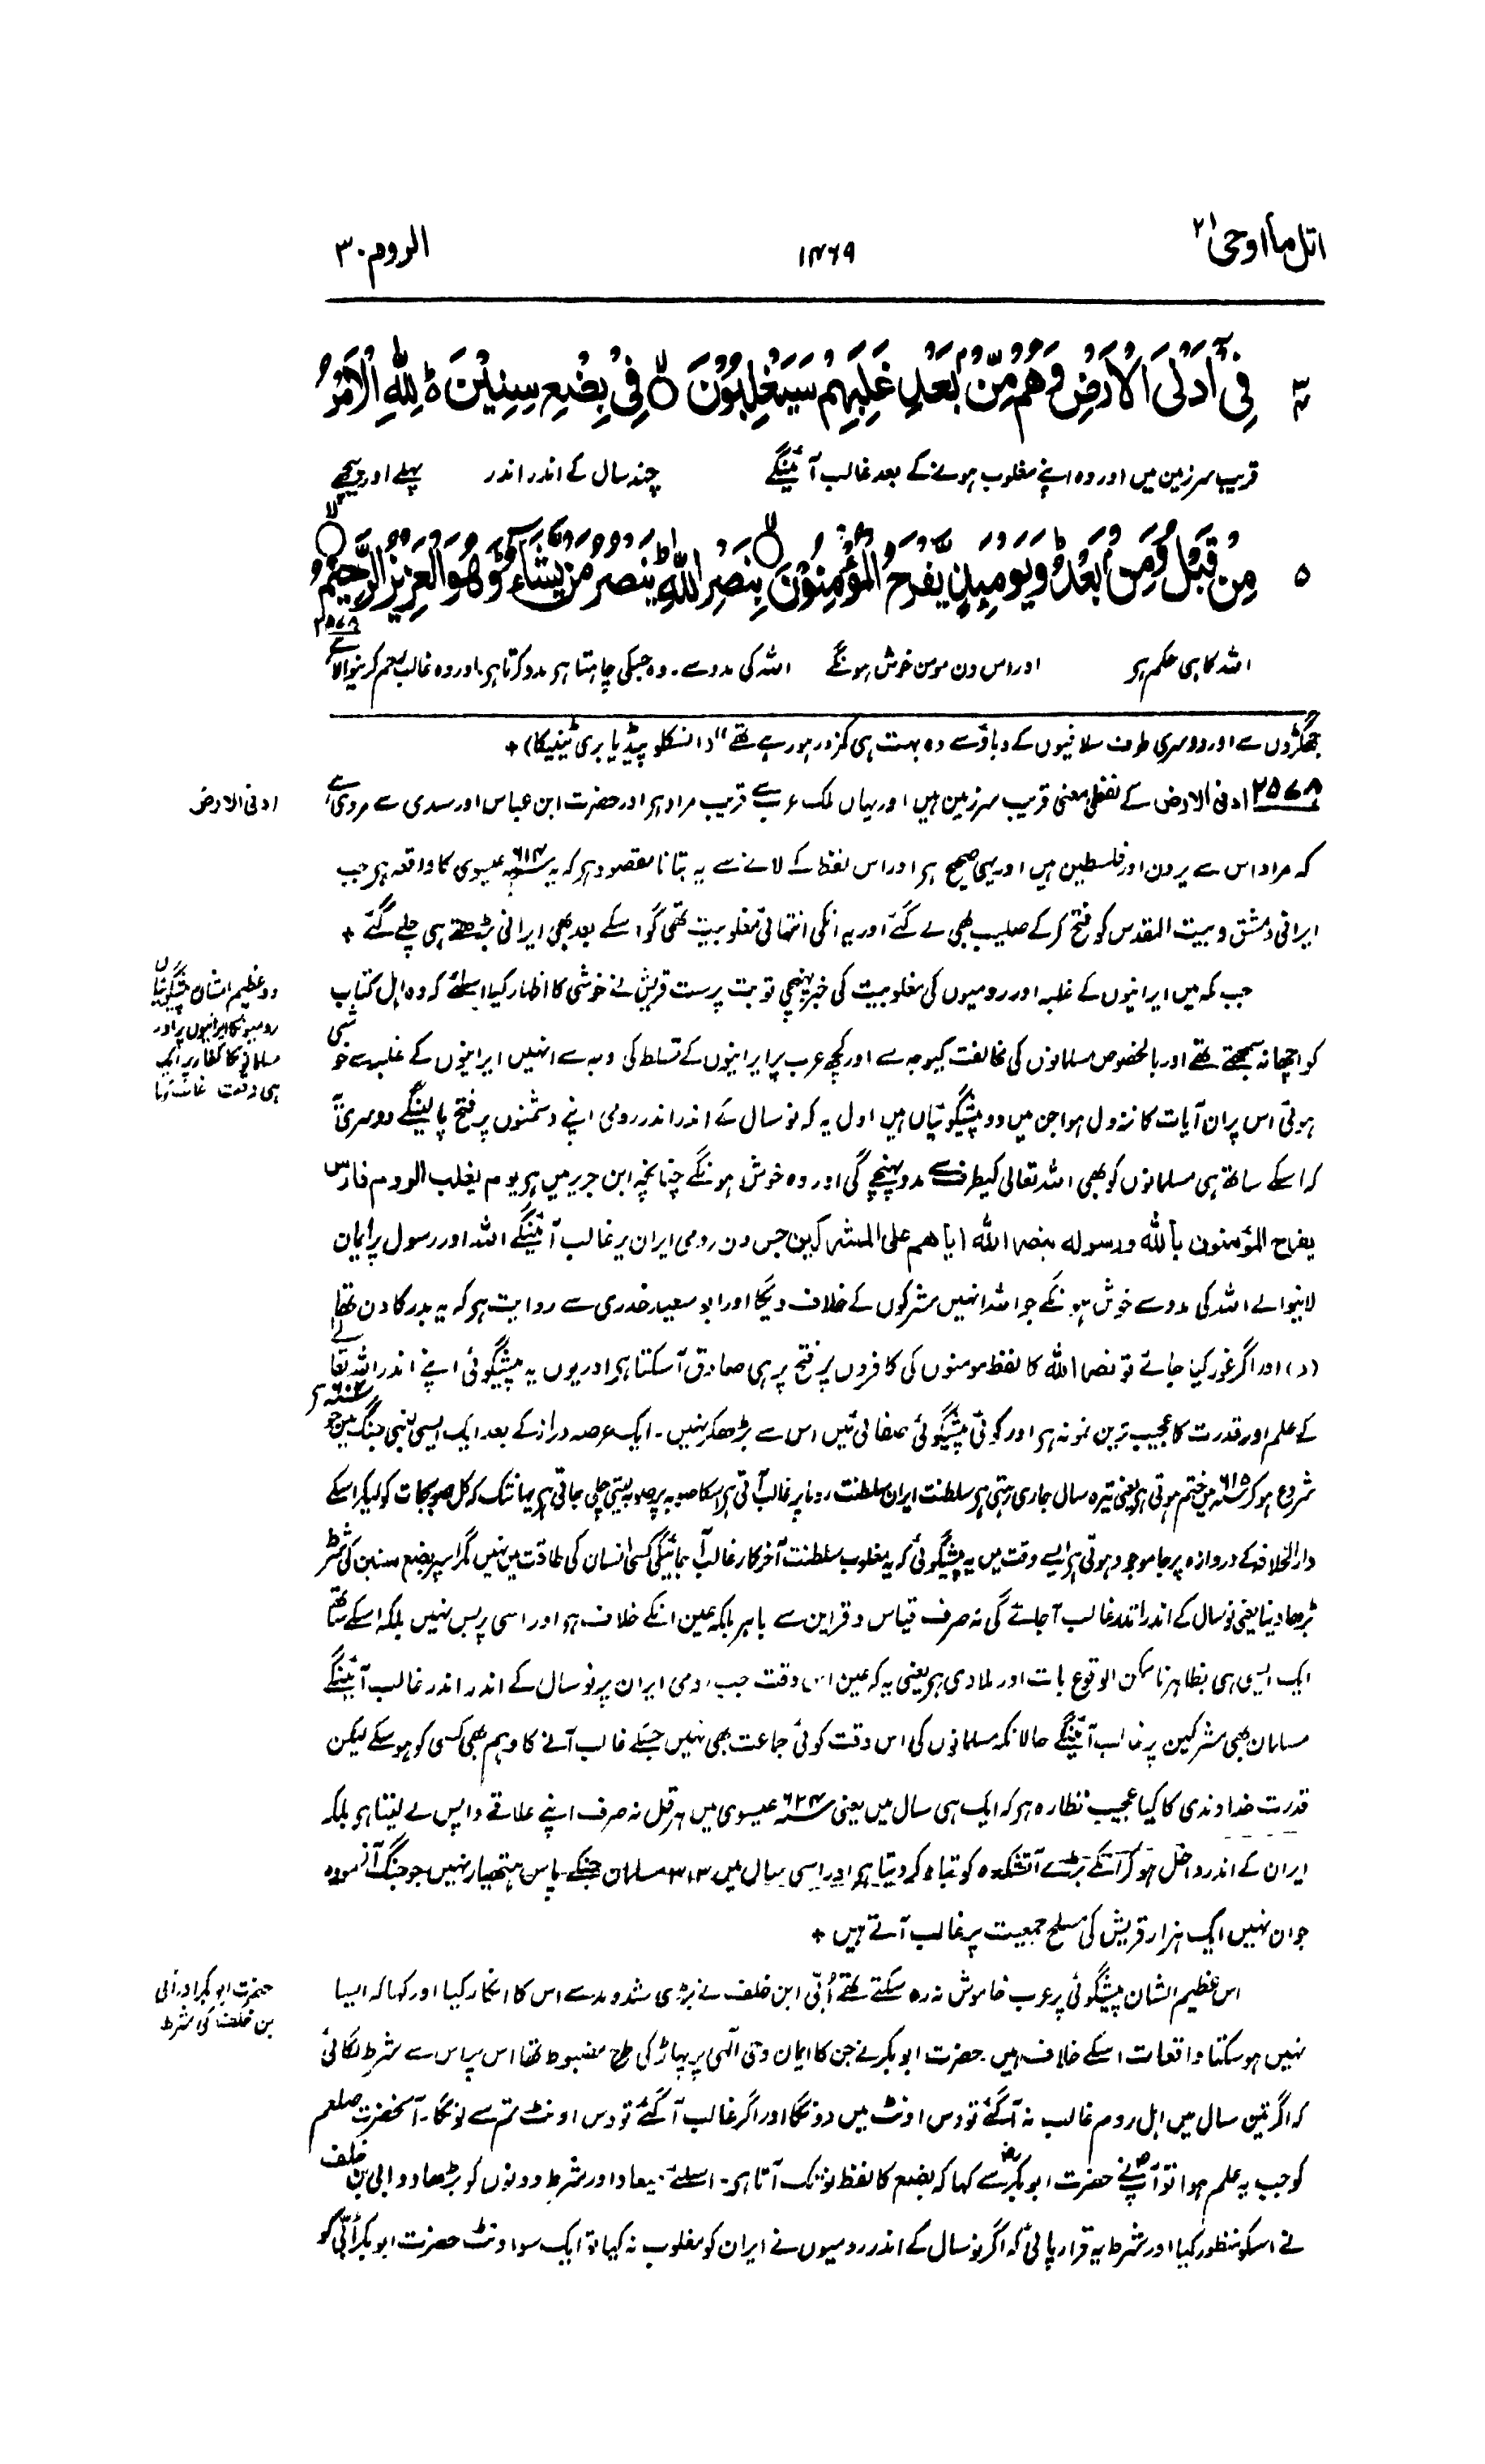 اتل ما اوحی ٢١
١٤٦٩
الروم ٣٠
فِیْۤ اَدْنَی الْاَرْضِ وَهُمْ مِّنْۢ بَعْدِ غَلَبِهِمْ سَیَغْلِبُوْنَ ۙ فِیْ بِضْعِ سِنِیْنَ ؕ لِلّٰهِ الْاَمْرُ
قریب سرزمین میں اور وہ اپنے مغلوب ہونے کے بعد غالب آئینگے چند سال کے اندر اندر پہلے اور پیچھے
٥ مِنْ قَبْلُ وَمِنْۢ بَعْدُ ؕ وَیَوْمَئِذٍ یَّفْرَحُ الْمُؤْمِنُوْنَ ۙ بِنَصْرِ اللّٰهِ ؕ یَنْصُرُ مَنْ یَّشَآءُ ؕ وَهُوَ الْعَزِیْزُ الرَّحِیْمُ ۙ
٢٥٤٨
اللہ کا ہی حکم ہو اور اس دن مومن خوش ہونگے اللہ کی مدد سے۔ وہ جسکی چاہتا ہو مدد کرتا ہو۔ اور وہ غالب رحم کرنیوالا ہے
جھگڑوں سے اور دوسری طرف سلافیوں کے دباؤ سے وہ بہت ہی کمزور ہو رہے تھے" (انسکلوپیڈیا بری ٹینیکا) +
٢٥٤٨ ادنی الارض کے لفظی معنی قریب سرزمین ہیں اور یہاں ملک عرب سے قریب مراد ہو اور حضرت ابن عباس اور سدی سے مروی ہے
ادنی الارض
کہ مراد اس سے یردن اور فلسطین ہیں اور یہی صحیح ہو اور اس لفظ کے لانے سے یہ بتانا مقصود ہو کہ یہ ٦١٤ء عیسوی کا واقعہ ہو جب
ایرانی دمشق و بیت المقدس کو فتح کر کے صلیب بھی لے گئے اور یہ انکی انتہائی مغلوبیت تھی گو اسکے بعد بھی ایرانی بڑھتے ہی چلے گئے +
جب مکہ میں ایرانیوں کے غلبہ اور رومیوں کی مغلوبیت کی خبر پہنچی تو بت پرست قریش نے خوشی کا اظہار کیا اسلئے کہ وہ اہل کتاب
دو عظیم الشان پیشگوئیاں
رومیوں کا ایرانیوں پر اور
مسلمانوں کا کفار پر ایک
ہی وقت غالب آنا
کو اچھا نہ سمجھتے تھے اور بالخصوص مسلمانوں کی مخالفت کیوجہ سے اور کچھ عرب پر ایرانیوں کے تسلط کی وجہ سے انہیں ایرانیوں کے غلبہ سے خوشی
ہوئی اس پر ان آیات کا نزول ہوا جن میں دو پیشگوئیاں ہیں اول یہ کہ نو سال کے اندر اندر رومی اپنے دشمنوں پر فتح پا لینگے دوسری یہ
کہ اسکے ساتھ ہی مسلمانوں کو بھی اللہ تعالی کیطرف سے مدد پہنچے گی اور وہ خوش ہونگے چنانچہ ابن جریر میں ہو یوم یغلب الروم فارس
یفرح المؤمنون باللہ ورسولہ بنصر اللہ ایاھم علی المشرکین جس دن رومی ایران پر غالب آئینگے اللہ اور رسول پر ایمان
لانیوالے اللہ کی مدد سے خوش ہونگے جو اللہ انہیں مشرکوں کے خلاف دیگا اور ابو سعید خدری سے روایت ہو کہ یہ بدر کا دن تھا
(د) اور اگر غور کیا جائے تو نصر اللہ کا لفظ مومنوں کی کافروں پر فتح پر ہی صادق آ سکتا ہو اور یوں یہ پیشگوئی اپنے اندر اللہ تعالے
کے علم اور قدرت کا عجیب ترین نمونہ ہو اور کوئی پیشگوئی صفائی میں اس سے بڑھکر نہیں۔ ایک عرصہ دراز کے بعد ایک ایسی لنبی جنگ میں جو ٦٠٢ء سے
شروع ہو کر ٦١٥ء میں ختم ہوتی ہو یعنی تیرہ سال جاری رہتی ہو سلطنت ایران سلطنت روما پر غالب آتی ہو اسکا صوبہ پر صوبہ لیتی چلی جاتی ہو یہانتک کہ کل صوبجات کو لیکر اسکے
دارالخلافہ کے دروازہ پر جا موجود ہوتی ہو ایسے وقت میں یہ پیشگوئی کہ یہ مغلوب سلطنت آخرکار غالب آ جائیگی کسی انسان کی طاقت میں نہیں مگر اسپر بضع سنین کی شرط
بڑھا دینا یعنی نو سال کے اندر اندر غالب آ جائے گی نہ صرف قیاس و قراین سے باہر بلکہ عین انکے خلاف ہو اور اسی پر بس نہیں بلکہ اسکے ساتھ
ایک ایسی ہی بظاہر ناممکن الوقوع بات اور ملا دی ہو یعنی یہ کہ عین اس وقت جب رومی ایران پر نو سال کے اندر اندر غالب آئینگے
مسلمان بھی مشرکین پر غالب آئینگے حالانکہ مسلمانوں کی اس وقت کوئی جماعت بھی نہیں جسکے غالب آنے کا وہم بھی کسی کو ہو سکے لیکن
قدرت خداوندی کا کیا عجیب نظارہ ہو کہ ایک ہی سال میں یعنی ٦٢٤ء عیسوی میں ہرقل نہ صرف اپنے علاقے واپس لے لیتا ہو بلکہ
ایران کے اندر داخل ہو کر انکے بڑے آتشکدہ کو تباہ کر دیتا ہو اور اسی سال میں ٣١٣ مسلمان جنکے پاس ہتھیار نہیں جو جنگ آزمودہ
جوان نہیں ایک ہزار قریش کی مسلح جمعیت پر غالب آتے ہیں +
اس عظیم الشان پیشگوئی پر عرب خاموش نہ رہ سکتے تھے اُبَیّ ابن خلف نے بڑی شد و مد سے اس کا انکار کیا اور کہا کہ ایسا
حضرت ابوبکر اور ابی
بن خلف کی شرط
نہیں ہو سکتا واقعات اسکے خلاف ہیں۔ حضرت ابوبکر نے جن کا ایمان وحی الٰہی پر پہاڑ کی طرح مضبوط تھا اس پر اس سے شرط لگائی
کہ اگر تین سال میں اہل روم غالب نہ آگئے تو دس اونٹ میں دونگا اور اگر غالب آ گئے تو دس اونٹ تم سے لونگا۔ آنحضرت صلعم
کو جب یہ علم ہوا تو آپ نے حضرت ابوبکر سے کہا کہ بضع کا لفظ نو تک آتا ہو۔ اسلئے میعاد اور شرط دونوں کو بڑھا دو ابی بن خلف
نے اسکو منظور کیا اور شرط یہ قرار پائی کہ اگر نو سال کے اندر رومیوں نے ایران کو مغلوب نہ کیا تو ایک سو اونٹ حضرت ابوبکر اُبَیّ کو